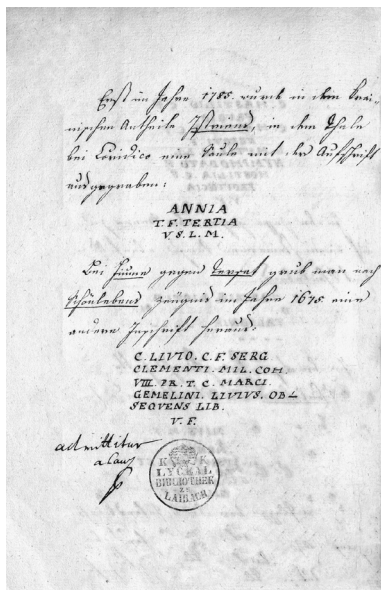 Erst im Jahre 1785. wurde in dem Krai-
nischen Antheile Istriens, in dem Thale
bei Coridico eine Säule mit der Aufschrift
ausgegraben:
ANNIA
T. F. TERTIA
V. S. L. M.
Bei Fiume gegen Tersat grub man nach
Schönlebens Zeugniß im Jahre 1675 eine
andere Inschrift heraus.
C. LIVIO. C. F. SERG
CLEMENTI. MIL. COM.
VIII. PR. T. C. MARCI.
GEMELINI. LIVIUS. OBL
SEQVENS LIB.
V. F.
admittitur
K K
LYCEAL
BIBLIOTHEK
ZU
LAIBACH